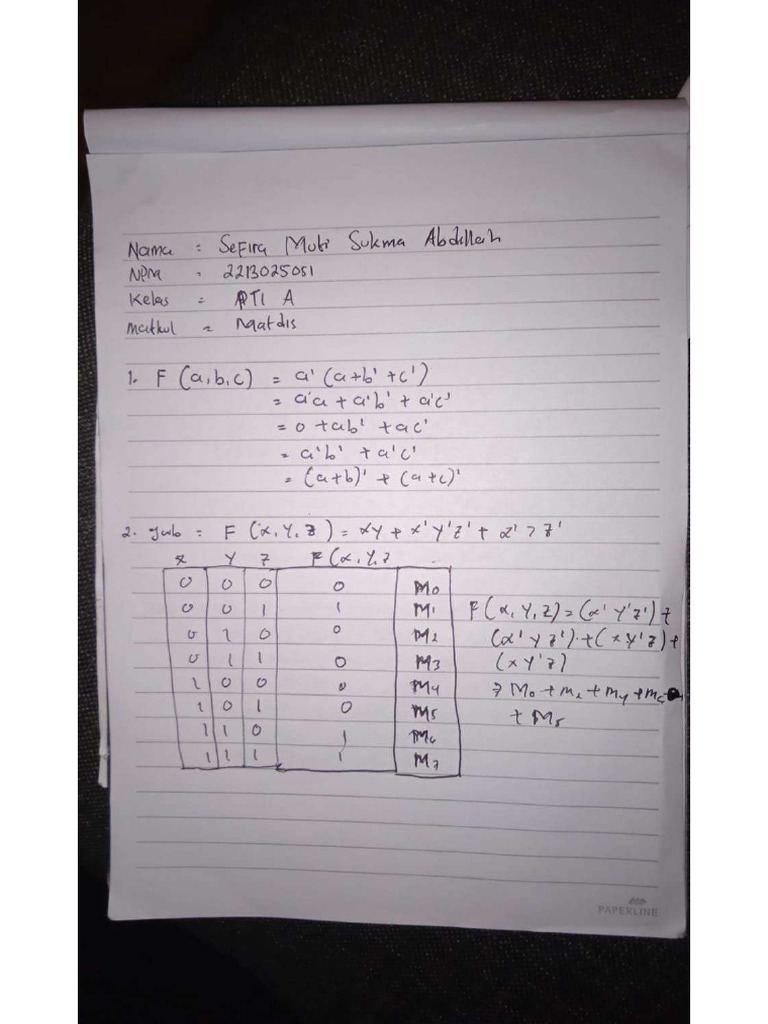 Nama : Sefira Muti Sukma Abdillah
NPM : 2213025051
Kelas = PTI A
Matkul = Matdis
1. F (a,b,c) = a' (a+b'+c')
= a'a + a'b' + a'c'
= 0 + ab' + ac'
= a'b' + a'c'
= (a+b)' + (a+c)'
2. Jwb = F (x, Y, Z) = xy + x'Y'z' +
x Y z F (x, Y, z
0 0 0 0 M0
0 0 1 1 M1
0 1 0 0 M2
0 1 1 0 M3
1 0 0 0 M4
1 0 1 0 M5
1 1 0 1 M6
1 1 1 1 M7
F(x, Y, Z) = (x' Y' z') +
(x' y z') + (x Y' z) +
(x Y' z)
+ M5
PAPERLINE